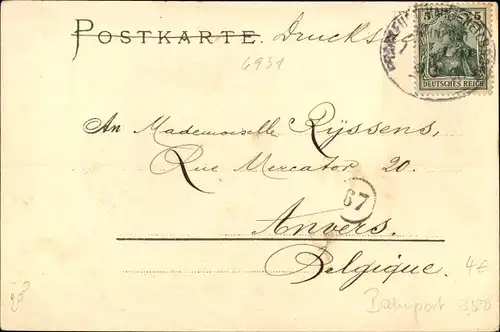 POSTKARTE. Drucks
5 5
DEUTSCHES REICH
6931
An Mademoiselle Ryssens,
Rue Mercator 20.
67
Anvers.
Belgique.
4€
Bahnpost 250